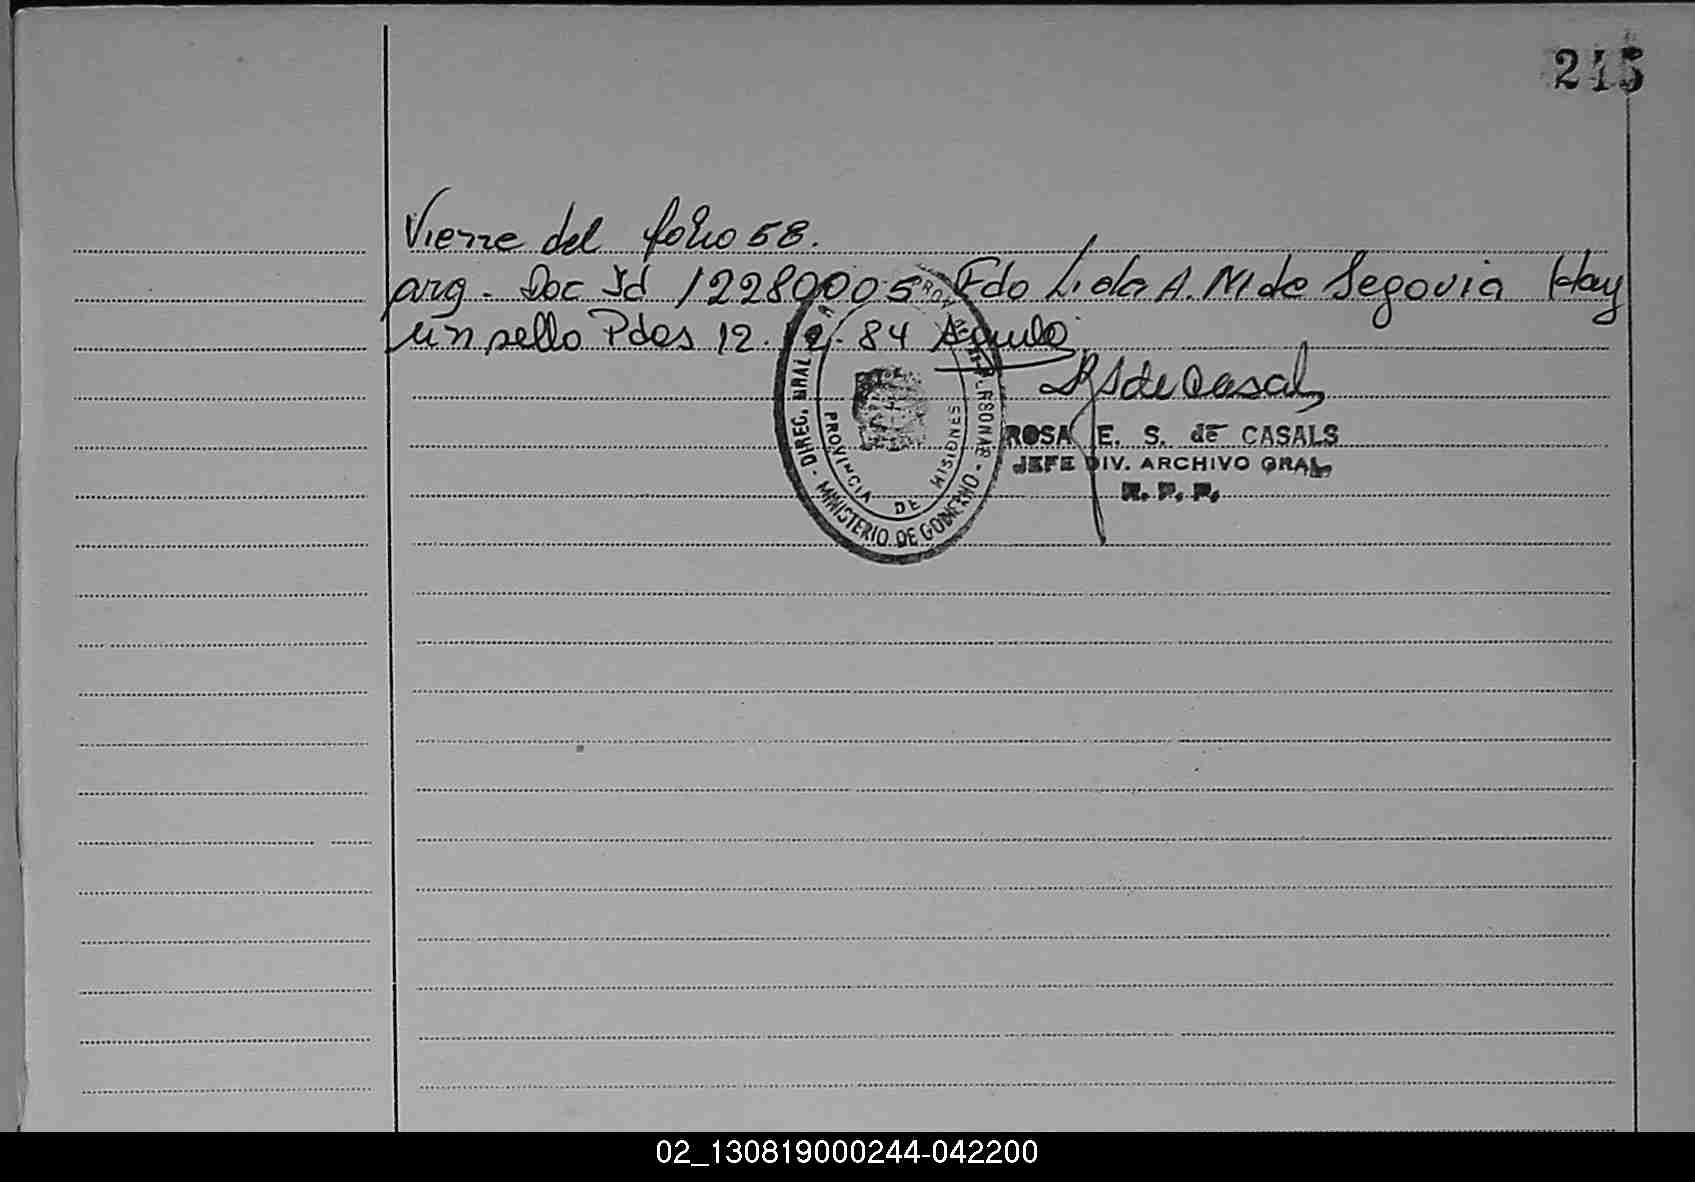 215
Vienne del folio 58.
arg. Doc Id 12280005 Fdo Lida A. M de Segovia Hay
un sello Pdas 12. 12. 84
R S de Casals
ROSA E. S. de CASALS
JEFE DIV. ARCHIVO GRAL.
R. P. P.
DIREC. GRAL
MINISTERIO DE GOBIERNO
PROVINCIA DE MISIONES
02_130819000244-042200